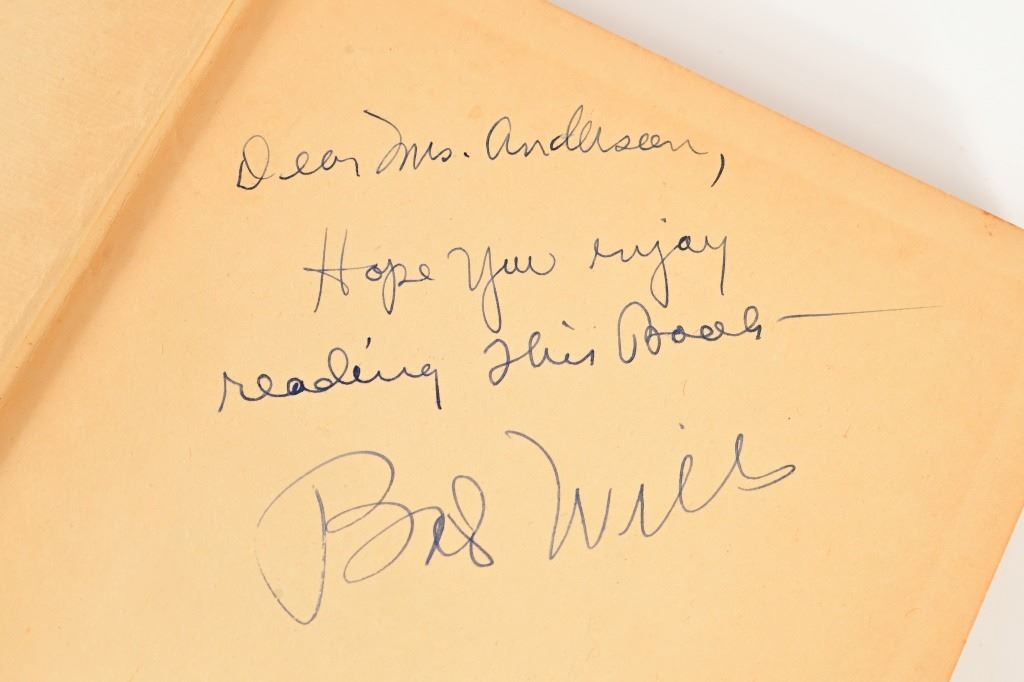 Dear Mrs. Anderson,
Hope you enjoy
reading this Book —
Bob Wills